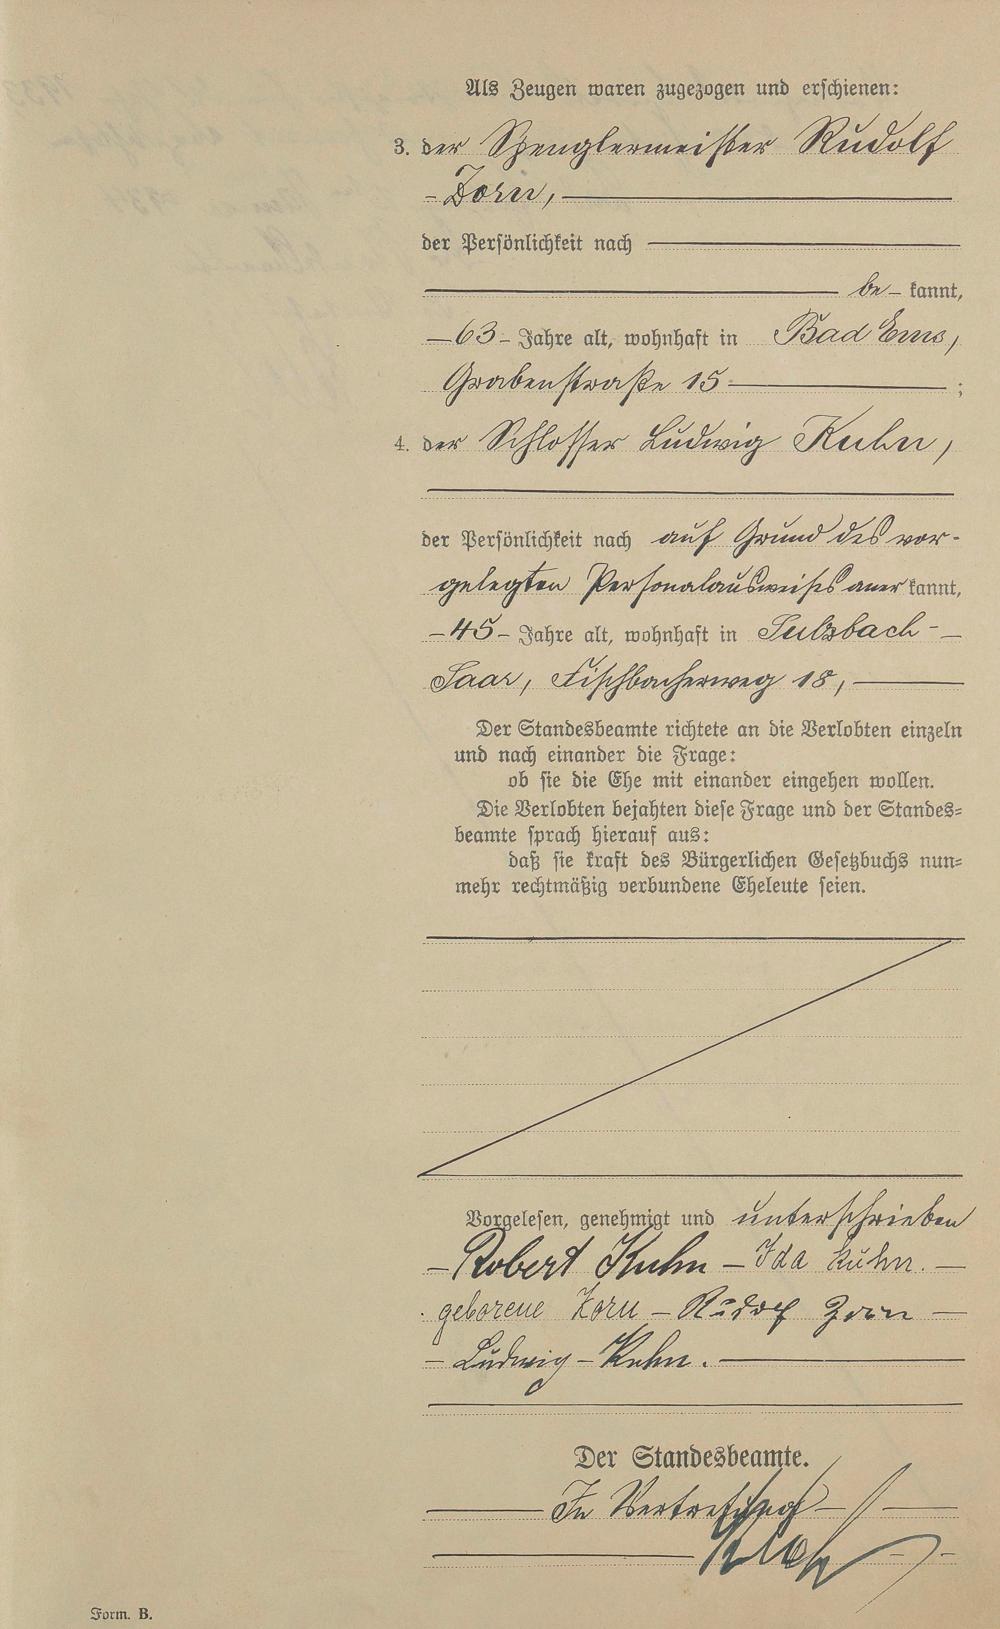 Als Zeugen waren zugezogen und erschienen:
3. der Spenglermeister Rudolf
- Zorn,
der Persönlichkeit nach
be - kannt,
- 63 - Jahre alt, wohnhaft in Bad Ems,
Grabenstraße 15 ;
4. der Schlosser Ludwig Kuhn,
der Persönlichkeit nach auf Grund des vor-
gelegten Personalausweises aner kannt,
- 45 - Jahre alt, wohnhaft in Sulzbach -
Saar, Fischbacherweg 18,
Der Standesbeamte richtete an die Verlobten einzeln
und nach einander die Frage:
ob sie die Ehe mit einander eingehen wollen.
Die Verlobten bejahten diese Frage und der Standes-
beamte sprach hierauf aus:
daß sie kraft des Bürgerlichen Gesetzbuchs nun-
mehr rechtmäßig verbundene Eheleute seien.
Vorgelesen, genehmigt und unterschrieben
- Robert Kuhn - Ida Kuhn. -
geborene Zorn - Rudolf Zorn -
- Ludwig - Kuhn.
Der Standesbeamte.
In Vertretung
Form. B.